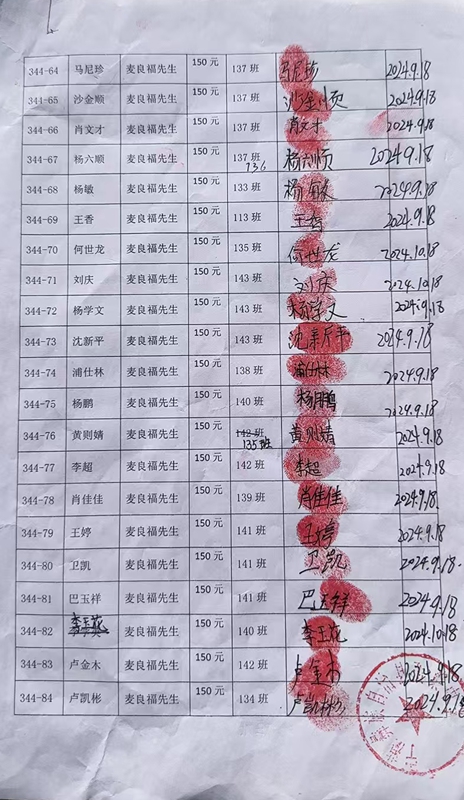 344-64 马尼珍 麦良福先生 150元 137班 马尼珍 2024.9.18
344-65 沙金顺 麦良福先生 150元 137班 沙金顺 2024.9.18
344-66 肖文才 麦良福先生 150元 137班 肖文才 2024.9.18
344-67 杨六顺 麦良福先生 150元 137班 136 杨六顺 2024.9.18
344-68 杨敏 麦良福先生 150元 133班 杨敏 2024.9.18
344-69 王香 麦良福先生 150元 113班 王香 2024.9.18
344-70 何世龙 麦良福先生 150元 135班 何世龙 2024.10.18
344-71 刘庆 麦良福先生 150元 143班 刘庆 2024.10.18
344-72 杨学文 麦良福先生 150元 143班 杨学文 2024.9.18
344-73 沈新平 麦良福先生 150元 143班 沈新平 2024.9.18
344-74 浦仕林 麦良福先生 150元 138班 浦仕林 2024.9.18
344-75 杨鹏 麦良福先生 150元 140班 杨鹏 2024.9.18
344-76 黄则婧 麦良福先生 150元 142班 135班 黄则婧 2024.9.18
344-77 李超 麦良福先生 150元 142班 李超 2024.9.18
344-78 肖佳佳 麦良福先生 150元 139班 肖佳佳 2024.9.18.
344-79 王婷 麦良福先生 150元 141班 王婷 2024.9.18
344-80 卫凯 麦良福先生 150元 141班 卫凯 2024.9.18.
344-81 巴玉祥 麦良福先生 150元 141班 巴玉祥 2024.9.18
344-82 李玉花 麦良福先生 150元 140班 李玉花 2024.10.18
344-83 卢金木 麦良福先生 150元 142班 卢金木 2024.9.18
344-84 卢凯彬 麦良福先生 150元 134班 卢凯彬 2024.9.18